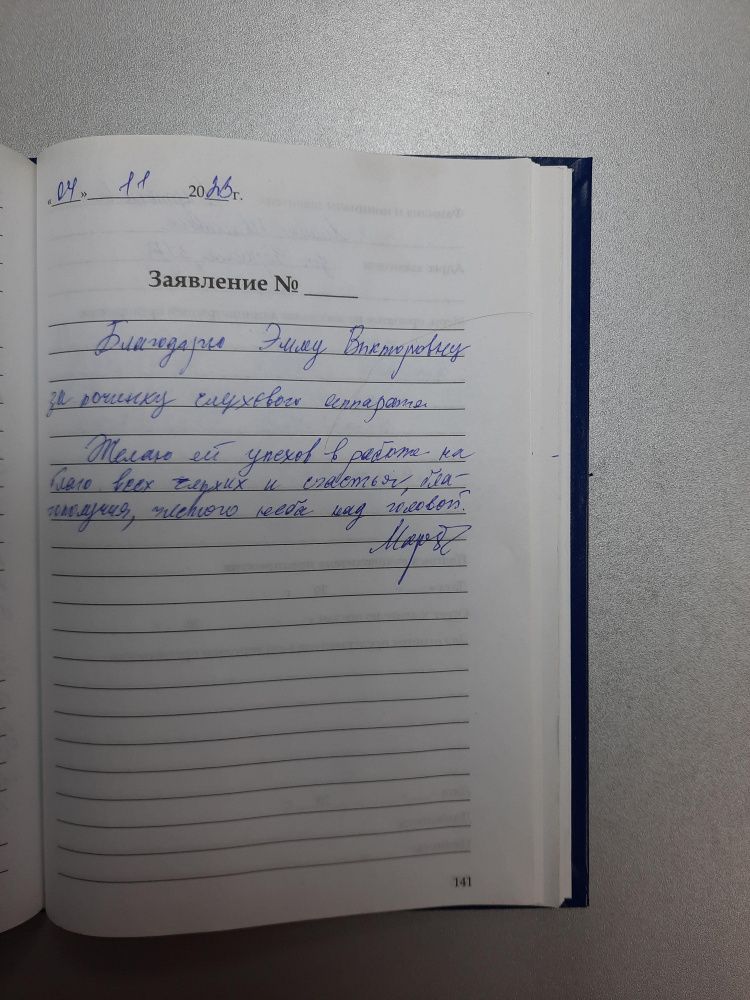 «04» 11 2023 г.
Заявление №
Благодарю Эмму Викторовну
за починку слухового аппарата.
Желаю ей успехов в работе на
благо всех глухих и счастья, бла-
гополучия, чистого неба над головой.
141